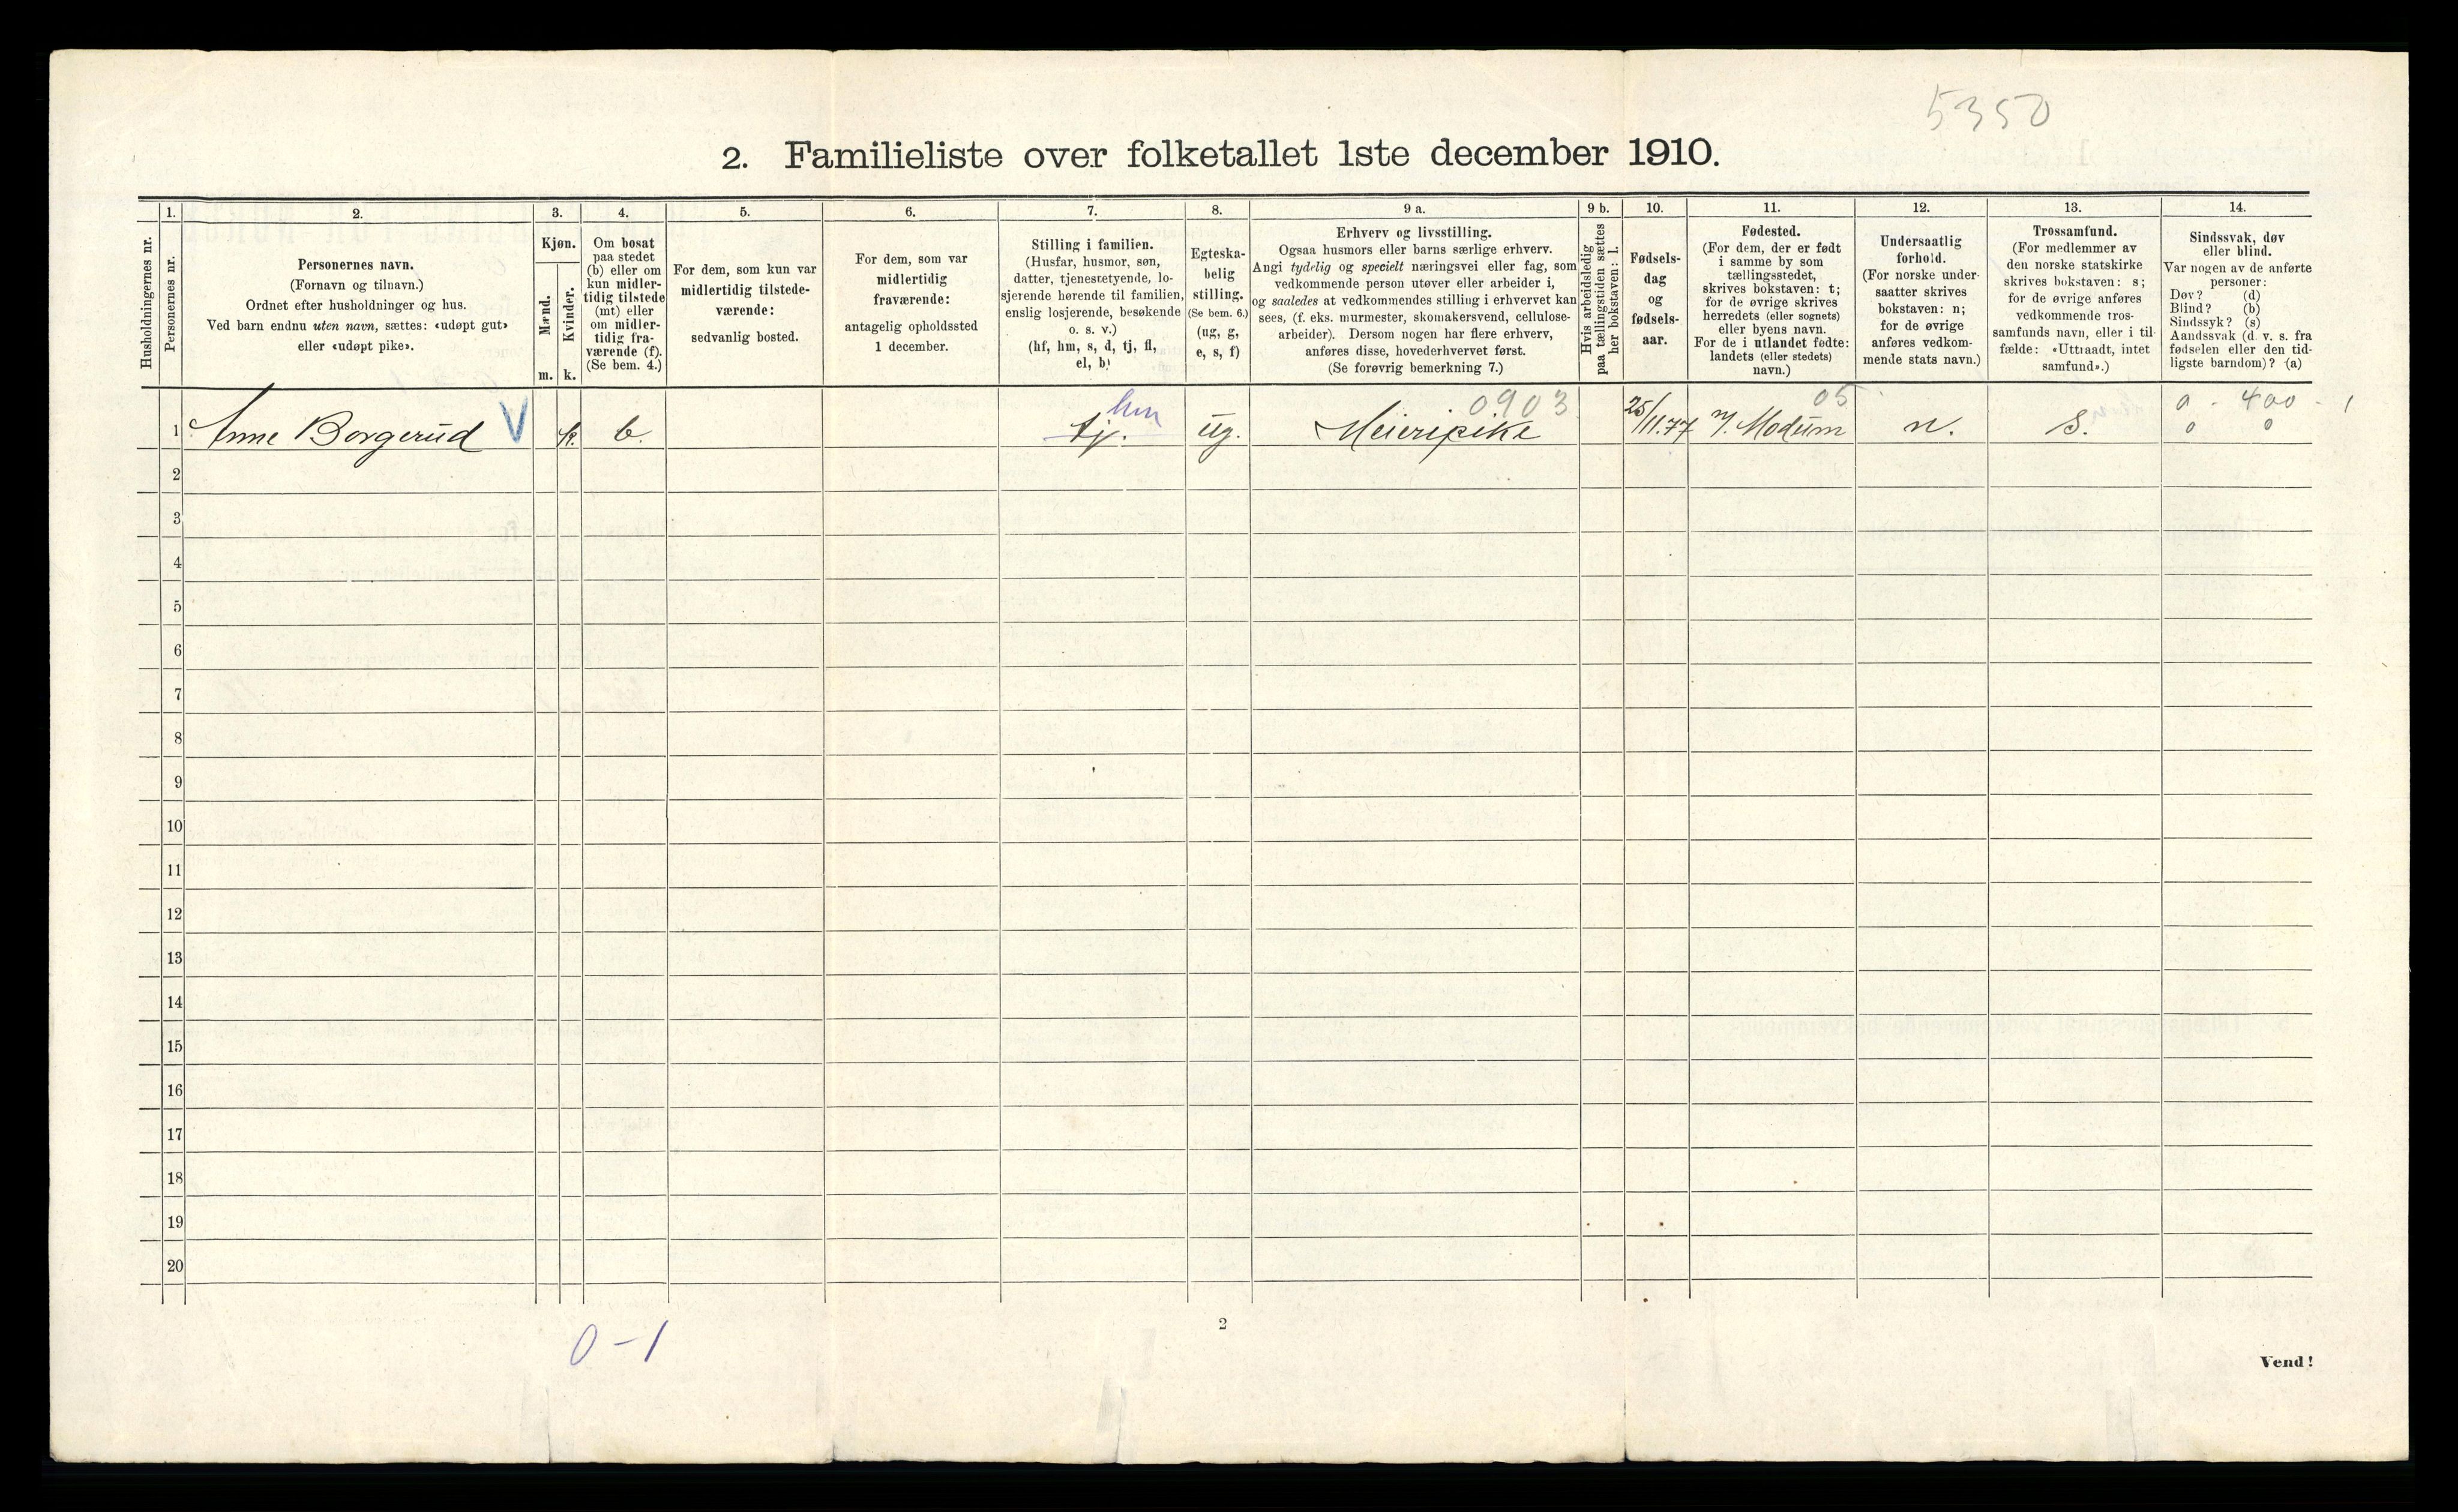 5350
2. Familieliste over folketallet 1ste december 1910.
Husholdningernes nr.
1.
Personernes nr.
2.
Personernes navn.
(Fornavn og tilnavn.)
Ordnet efter husholdninger og hus.
Ved barn endnu uten navn, sættes: «udøpt gut»
eller «udøpt pike».
3.
Kjøn.
Mænd.
Kvinder.
m. k.
4.
Om bosat
paa stedet
(b) eller om
kun midler-
tidig tilstede
(mt) eller
om midler-
tidig fra-
værende (f).
(Se bem. 4.)
5.
For dem, som kun var
midlertidig tilstede-
værende:
sedvanlig bosted.
6.
For dem, som var
midlertidig
fraværende:
antagelig opholdssted
1 december.
7.
Stilling i familien.
(Husfar, husmor, søn,
datter, tjenestetyende, lo-
sjerende hørende til familien,
enslig losjerende, besøkende
o. s. v.)
(hf, hm, s, d, tj, fl,
el, b)
8.
Egteska-
belig
stilling.
(Se bem. 6.)
(ug, g,
e, s, f)
9 a.
Erhverv og livsstilling.
Ogsaa husmors eller barns særlige erhverv.
Angi tydelig og specielt næringsvei eller fag, som
vedkommende person utøver eller arbeider i,
og saaledes at vedkommendes stilling i erhvervet kan
sees, (f. eks. murmester, skomakersvend, cellulose-
arbeider). Dersom nogen har flere erhverv,
anføres disse, hovederhvervet først.
(Se forøvrig bemerkning 7.)
9 b.
Hvis arbeidsledig
paa tællingstiden sættes
her bokstaven: l.
10.
Fødsels-
dag
og
fødsels-
aar.
11.
Fødested.
(For dem, der er født
i samme by som
tællingsstedet,
skrives bokstaven: t;
for de øvrige skrives
herredets (eller sognets)
eller byens navn.
For de i utlandet fødte:
landets (eller stedets)
navn.)
12.
Undersaatlig
forhold.
(For norske under-
saatter skrives
bokstaven: n;
for de øvrige
anføres vedkom-
mende stats navn.)
13.
Trossamfund.
(For medlemmer av
den norske statskirke
skrives bokstaven: s;
for de øvrige anføres
vedkommende tros-
samfunds navn, eller i til-
fælde: «Uttraadt, intet
samfund».)
14.
Sindssvak, døv
eller blind.
Var nogen av de anførte
personer:
Døv? (d)
Blind? (b)
Sindssyk? (s)
Aandssvak (d. v. s. fra
fødselen eller den tid-
ligste barndom)? (a)
hm 0903 05 0 - 400 - 1
1 Anne Borgerud V k. b. tj. ug. Meieripike 25/11.77 Modum n. s. 0 0
2
3
4
5
6
7
8
9
10
11
12
13
14
15
16
17
18
19
20
0-1
2
Vend!